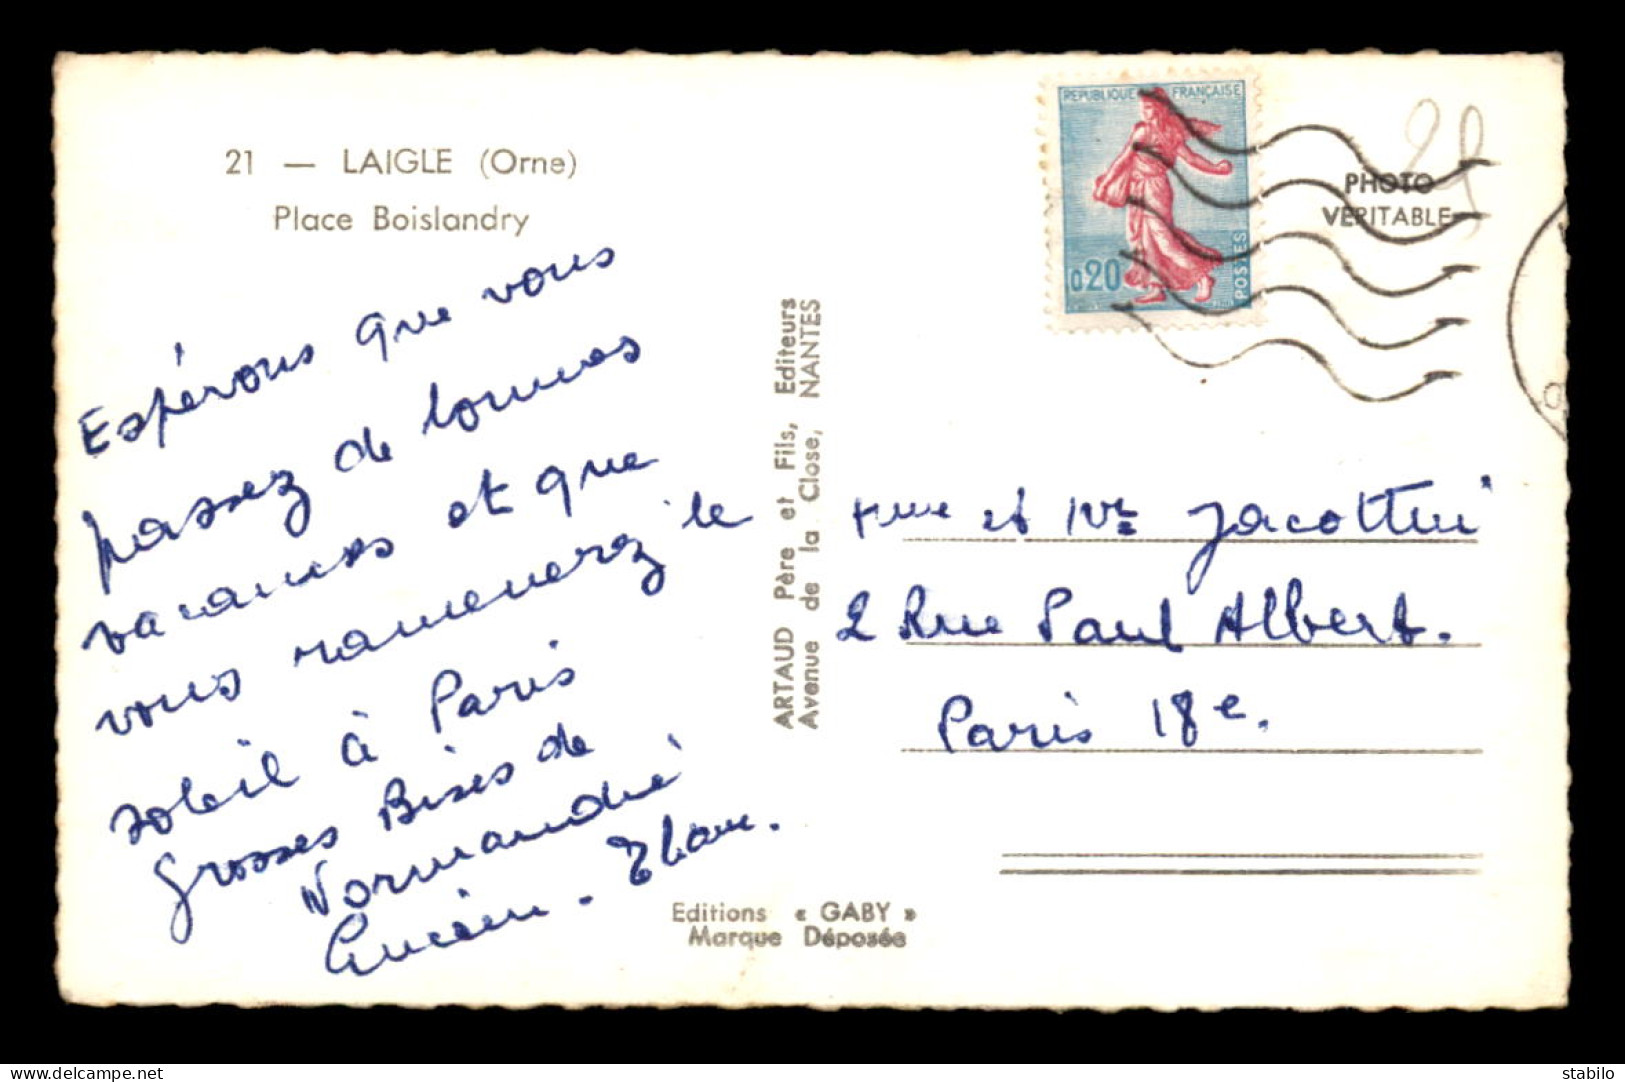 21 — LAIGLE (Orne)
Place Boislandry
Espérons que vous
passez de bonnes
vacances et que
vous ramenerez le
soleil à Paris
Grosses Bises de
Normandie
Lucien -
ARTAUD Père et Fils, Editeurs
Avenue de la Close, NANTES
Editions « GABY »
Marque Déposée
REPUBLIQUE FRANÇAISE
0,20
POSTES
PHOTO
VÉRITABLE
21
Mme et Mr Jacottin
2 Rue Paul Albert.
Paris 18e.
Delcampe.net
stabilo